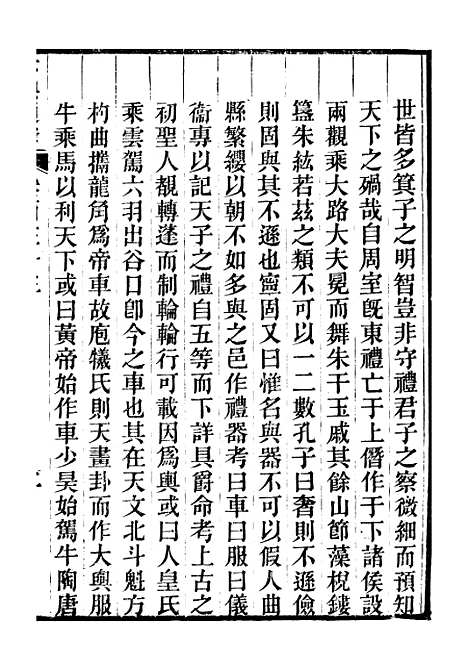 世皆多箕子之明智豈非守禮君子之察微細而預知
天下之禍哉自周室旣東禮亡于上僭作于下諸侯設
兩觀乘大路大夫冕而舞朱干玉戚其餘山節藻梲鏤
簋朱紘若茲之類不可以一二數孔子曰奢則不遜儉
則固與其不遜也寧固又曰惟名與器不可以假人曲
縣繁纓以朝不如多與之邑作禮器考曰車曰服曰儀
衞專以記天子之禮自五等而下詳具爵命考上古之
初聖人覩轉蓬而制輪輪行可載因爲輿或曰人皇氏
乘雲駕六羽出谷口卽今之車也其在天文北斗魁方
杓曲攜龍角爲帝車故庖犧氏則天畫卦而作大輿服
牛乘馬以利天下或曰黃帝始作車少昊始駕牛陶唐